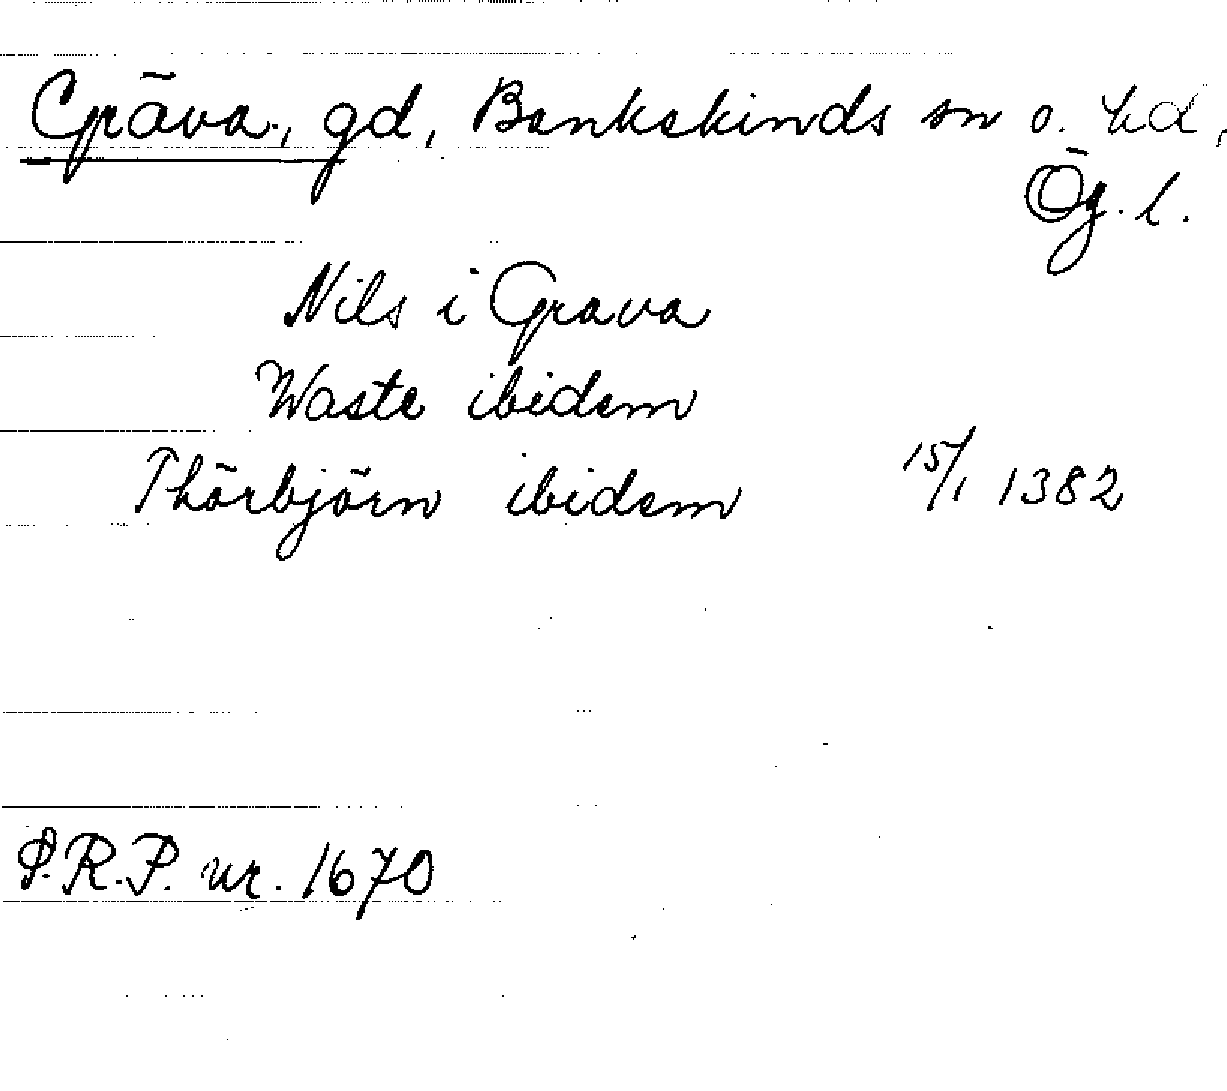 Gräva, gd, Bankekinds sn o. hd,
Ög. l.
Nils i Grava
Waste ibidem
Thörbjörn ibidem 15/1 1382
S.R.P. nr. 1670